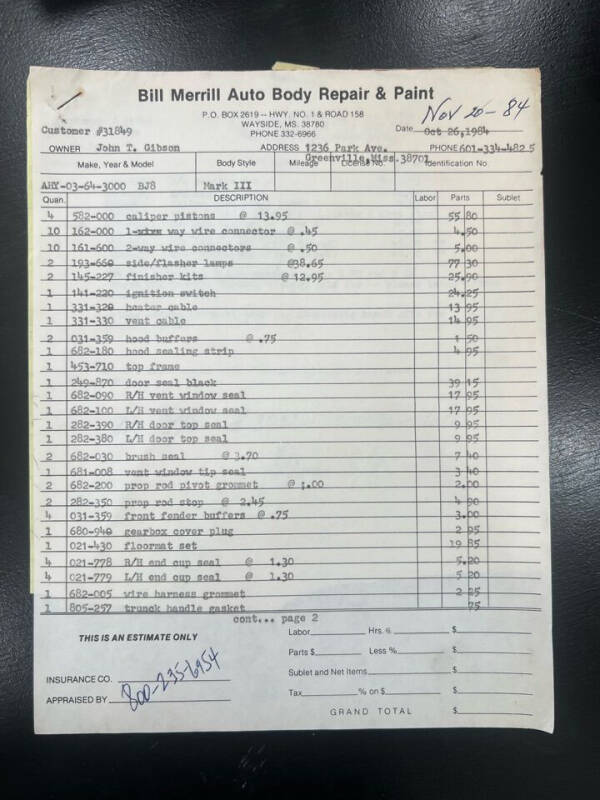 Bill Merrill Auto Body Repair & Paint
P.O. BOX 2619 -- HWY. NO. 1 & ROAD 158
WAYSIDE, MS. 38780
PHONE 332-6966
Nov 20-84
Customer #31849
Date Oct 26,1984
OWNER John T. Gibson ADDRESS 1236 Park Ave. PHONE 601-334-4825
Greenville,Miss.38701
Make, Year & Model Body Style Mileage License No. Identification No
AHY-03-64-3000 BJ8 Mark III
Quan. DESCRIPTION Labor Parts Sublet
4 582-000 caliper pistons @ 13.95 55 80
10 162-000 1-way wire connector @ .45 4.50
10 161-600 2-way wire connectors @ .50 5.00
2 193-660 side/flasher lamps @38.65 77 30
2 145-227 finisher kits @ 12.95 25.90
1 141-220 ignition switch 24.25
1 331-320 heater cable 13 95
1 331-330 vent cable 14 95
2 031-359 hood buffers @ .75 1 50
1 682-180 hood sealing strip 4 95
1 453-710 top frame
1 249-870 door seal black 39 15
1 682-090 R/H vent window seal 17 95
1 682-100 L/H vent window seal 17 95
1 282-390 R/H door top seal 9 95
1 282-380 L/H door top seal 9 95
2 682-030 brush seal @ 3.70 7 40
1 681-008 vent window tip seal 3 40
2 682-200 prop rod pivot grommet @ 1.00 2.00
2 282-350 prop rod stop @ 2.45 4 90
4 031-359 front fender buffers @ .75 3.00
1 680-940 gearbox cover plug 2 95
1 021-430 floormat set 19 85
4 021-778 R/H end cup seal @ 1.30 5.20
4 021-779 L/H end cup seal @ 1.30 5 20
1 682-005 wire harness grommet 2 25
1 805-257 trunck handle gasket 75
cont... page 2
THIS IS AN ESTIMATE ONLY
Labor Hrs. @ $
Parts $ Less % $
INSURANCE CO.
Sublet and Net Items $
APPRAISED BY 800-235-6954
Tax % on $ $
GRAND TOTAL $